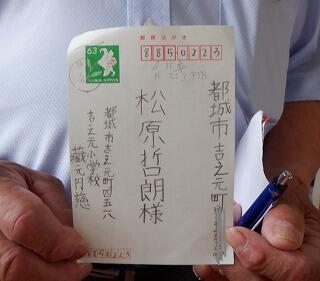 63
郵便はがき
8850223
都城市吉之元町
松原哲朗様
都城市吉之元町四五一八
吉之元小学校
蔵元円慈
8850223